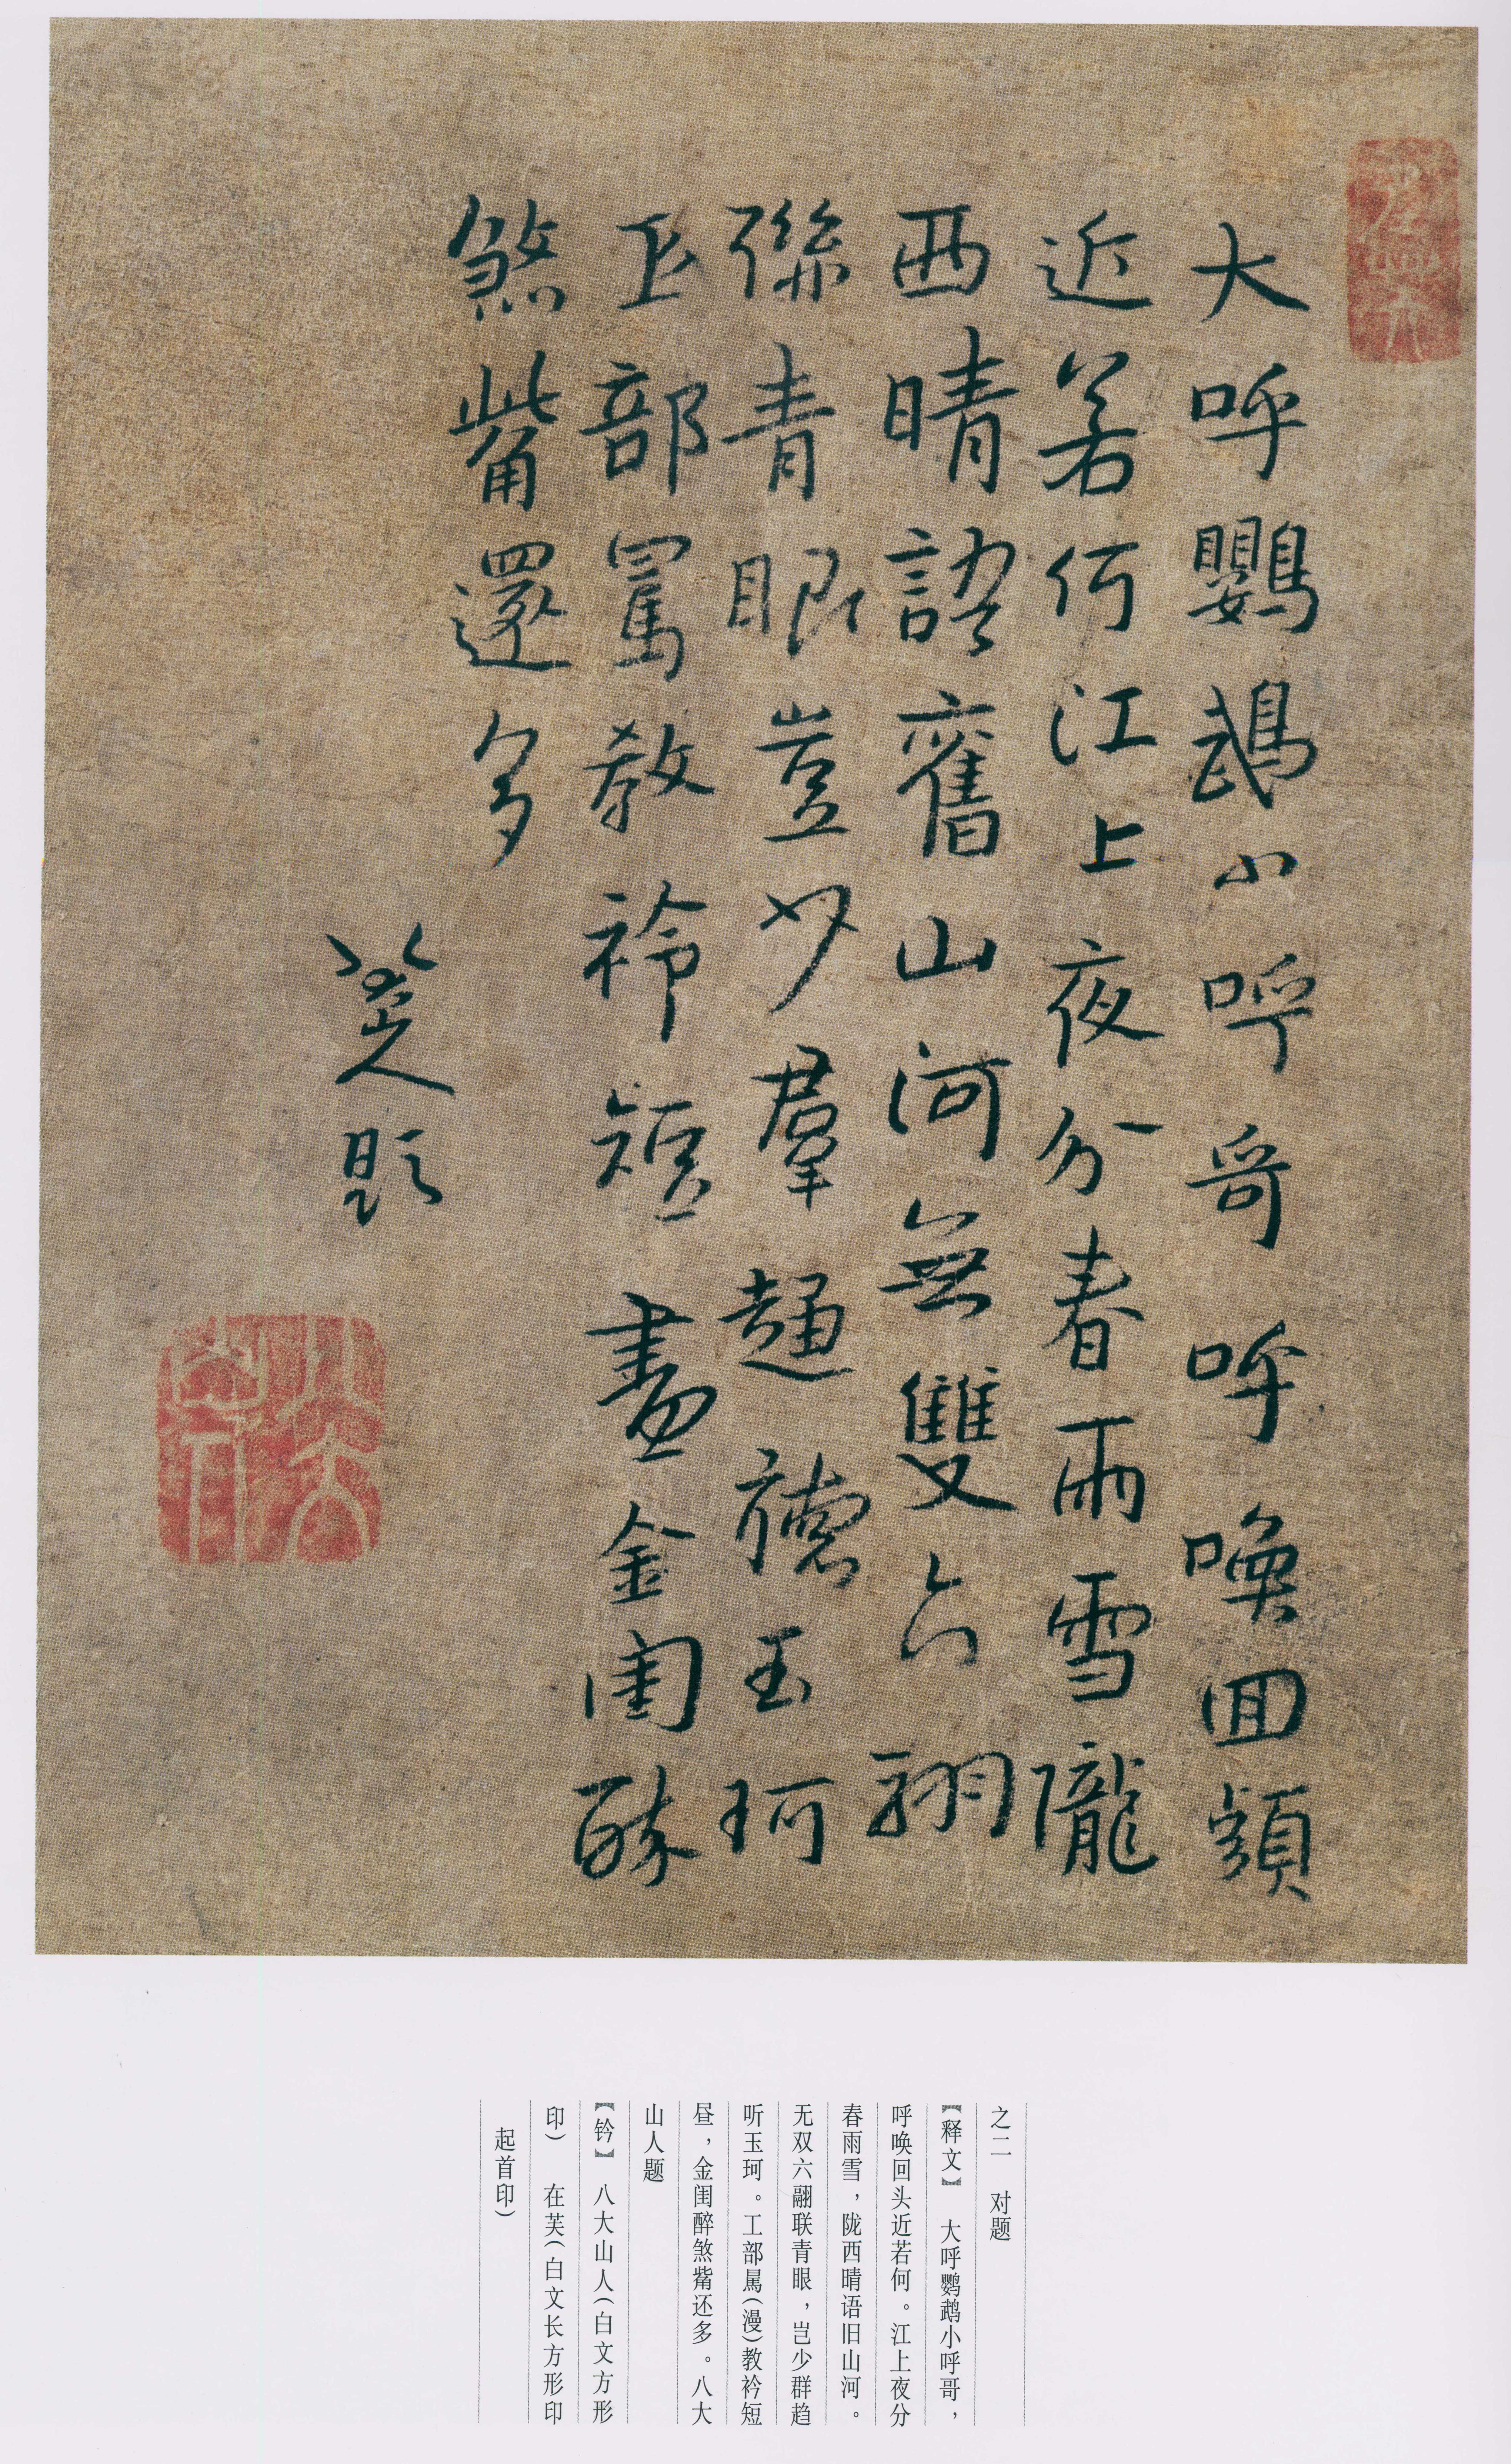 大呼鸚鵡小呼哥呼喚回頭
近若何江上夜分春雨雪隴
西晴語舊山河無雙六翮
聯青眼豈少群趨聽玉珂
工部罵教衿短晝金閨醉
煞觜還多
八大山人題
八大山人
之二 对题
【释文】 大呼鹦鹉小呼哥，
呼唤回头近若何。江上夜分
春雨雪，陇西晴语旧山河。
无双六翮联青眼，岂少群趋
听玉珂。工部骂(漫)教衿短
昼，金闺醉煞觜还多。八大
山人题
【钤】 八大山人(白文方形
印) 在芙(白文长方形印
起首印)